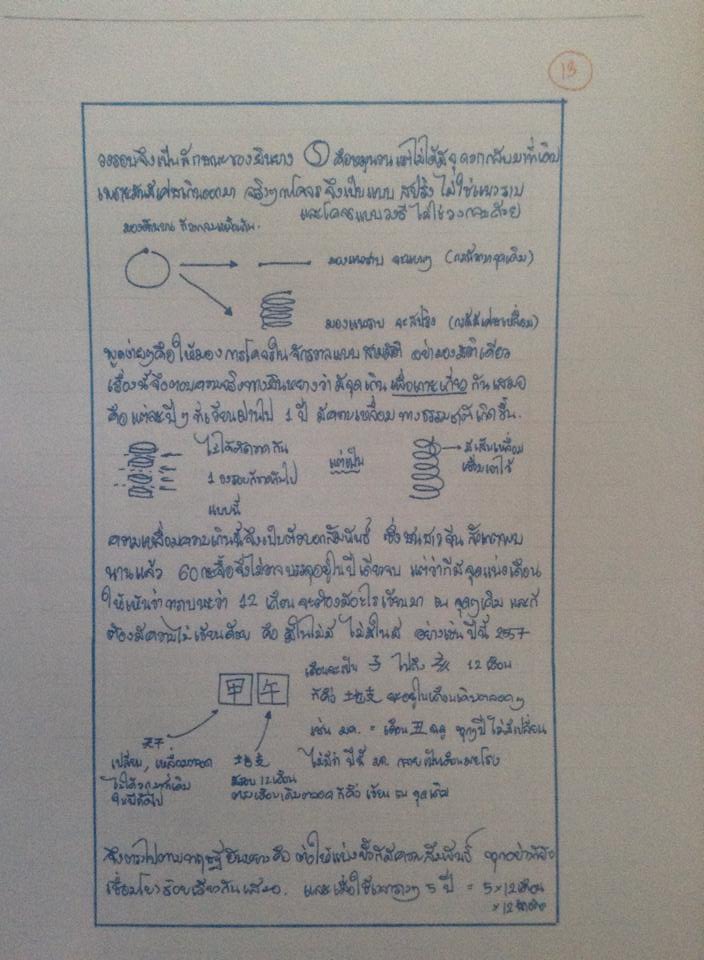 13
วงรอบจึงเป็นลักษณะของยินหยาง คือหมุนวน แต่ไม่ได้มีจุดวกกลับมาที่เดิม
เพราะมันมีเศษเกินออกมา จริงๆการโคจร จึงเป็นแบบ สปริง ไม่ใช่แนวราบ
และโคจรแบบวงรี ไม่ใช่วงกลมด้วย
มองแนวราบ จะแบนๆ (กลับมาจุดเดิม)
มองแนวราบ จะสปริง (กรณีมีเศษเหลื่อม)
พูดง่ายๆคือให้มอง การโคจรในจักรวาลแบบ สามมิติ อย่ามองมิติเดียว
เรื่องนี้จึงตอบความจริงทางยินหยางว่า มีจุดเกิน เพื่อเกาะเกี่ยว กันเสมอ
คือ แต่ละปีๆ ที่เวียนผ่านไป 1 ปี มีความเหลื่อม ทางธรรมชาติเกิดขึ้น.
ไม่ได้ตัดขาดกัน
1 วงรอบก็ขาดกันไป
แบบนี้
แต่เป็น
มีเส้นเหลื่อม
เชื่อมเอาไว้
ความเหลื่อมความเกินนี้จึงเป็นตัวบอกสัมพันธ์ ซึ่งชนชาวจีน สังเกตพบ
นานแล้ว 60 กะจื้อจึงไม่อาจบรรจุอยู่ในปีเดียวจบ แต่ว่าก็มีจุดแบ่งเดือน
ให้เห็นว่า 12 เดือน จะต้องมีอะไรเวียนมา ณ จุดๆเดิม และก็
ต้องมีความไม่เวียนด้วย คือ มีในไม่มี ไม่มีในมี อย่างเช่น ปีนี้ 2557
甲 午
เดือนจะเป็น 子 ไปถึง 亥 12 เดือน
ก็คือ 地支 จะอยู่ในเดือนเดิมตลอดๆ
เช่น มค. = เดือน 丑 ฉลู ทุกๆปี ไม่มีเปลี่ยน
ไม่มีว่า ปีนี้ มค. กลายเป็นเดือนมะโรง
天干
เปลี่ยน, เหลื่อมตลอด
ไม่ได้วกมาที่เดิม
ในปีถัดไป
地支
มีรอบ 12 เดือน
ตามเดือนเดิมตลอด ก็คือ เวียน ณ จุดเดิม
จึงตรงไปตามทฤษฎี ยินหยาง คือ ต่อให้แบ่งขั้วก็มีความสัมพันธ์ ทุกอย่างก็ยัง
เชื่อมโยงร้อยเรียงกันเสมอ. และเมื่อใช้เวลาราวๆ 5 ปี = 5 x 12 เดือน
x 12